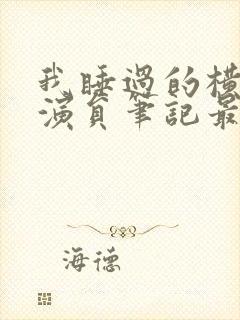 我睡過的橫
演員筆記最
海德